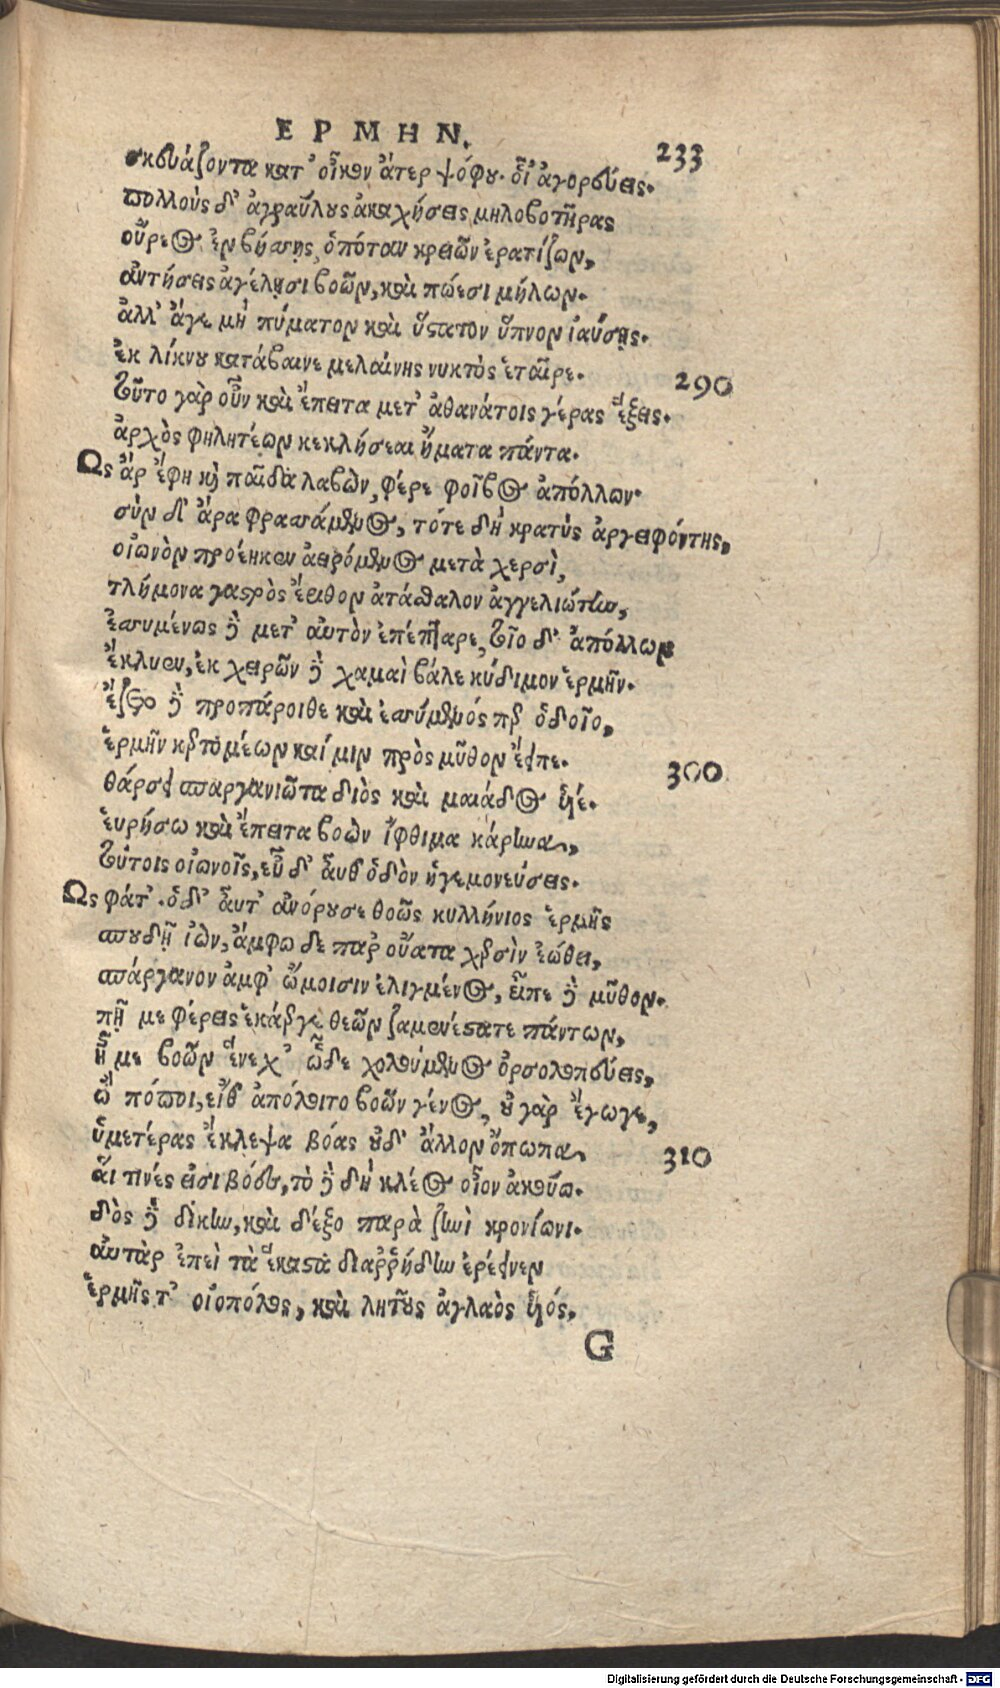 ΕΡΜΗΝ.
233
σκευάζοντα κατ' οἶκον ἄτερ ψόφου· οἷ' ἀγορεύεις.
πολλοὺς δ' ἀγραύλους ἀκαχήσεις μηλοβοτῆρας
οὔρεος ἐν βήσσῃς, ὁπόταν κρειῶν ἐρατίζων,
ἀντήσεις ἀγέλῃσι βοῶν, καὶ πώεσι μήλων.
ἀλλ' ἄγε μὴ πύματον καὶ ὕστατον ὕπνον ἰαύσῃς.
ἐκ λίκνου κατάβαινε μελαίνης νυκτὸς ἑταῖρε.
290
τοῦτο γὰρ οὖν καὶ ἔπειτα μετ' ἀθανάτοις γέρας ἕξεις.
ἀρχὸς φηλητέων κεκλήσεαι ἤματα πάντα.
Ὣς ἄρ ἔφη καὶ παῖδα λαβὼν, φέρε φοῖβος ἀπόλλων·
σὺν δ' ἄρα φρασσάμενος, τότε δὴ κρατὺς ἀργειφόντης,
οἰωνὸν προέηκεν ἀειρόμενος μετὰ χερσὶ,
τλήμονα γαστρὸς ἔριθον ἀτάσθαλον ἀγγελιώτην,
ἐσσυμένως δὲ μετ' αὐτὸν ἐπέπταρε, τοῖο δ' ἀπόλλων
ἔκλυεν, ἐκ χειρῶν δὲ χαμαὶ βάλε κύδιμον ἑρμῆν.
ἕζετο δὲ προπάροιθε καὶ ἐσσύμενός περ ὁδοῖο,
ἑρμῆν κερτομέων καί μιν πρὸς μῦθον ἔειπε.
300
θάρσει σπαργανιῶτα διὸς καὶ μαιάδος υἱέ.
εὑρήσω καὶ ἔπειτα βοῶν ἴφθιμα κάρηνα,
τούτοις οἰωνοῖς, εὖ δ' αὖτε ὁδὸν ἡγεμονεύσεις.
Ὣς φάτ'· ὁ δ' αὖτ' ἀνόρουσε θοῶς κυλλήνιος ἑρμῆς
σπουδῇ ἰὼν, ἄμφω δε παρ οὔατα χερσὶν ἐώθει,
σπάργανον ἀμφ' ὤμοισιν ἐλιγμένος, εἶπε δὲ μῦθον.
πῇ με φέρεις ἑκάεργε θεῶν ζαμενέστατε πάντων,
ἦ με βοῶν ἕνεχ' ὧδε χολούμενος ὀρσολοπεύεις,
ὢ πόποι, εἴθ' ἀπόλοιτο βοῶν γένος, οὐ γὰρ ἔγωγε,
ὑμετέρας ἔκλεψα βόας οὐδ' ἄλλον ὄπωπα,
310
αἵ τινές εἰσι βόες, τὸ δὲ δὴ κλέος οἶον ἀκούω.
δὸς δὲ δίκην, καὶ δέξο παρὰ ζηνὶ κρονίωνι.
αὐτὰρ ἐπεὶ τὰ ἕκαστα διαῤῥήδην ἐρέεινεν
ἑρμῆς τ' οἰοπόλος, καὶ λητοῦς ἀγλαὸς υἱός,
G
Digitalisierung gefördert durch die Deutsche Forschungsgemeinschaft - DFG